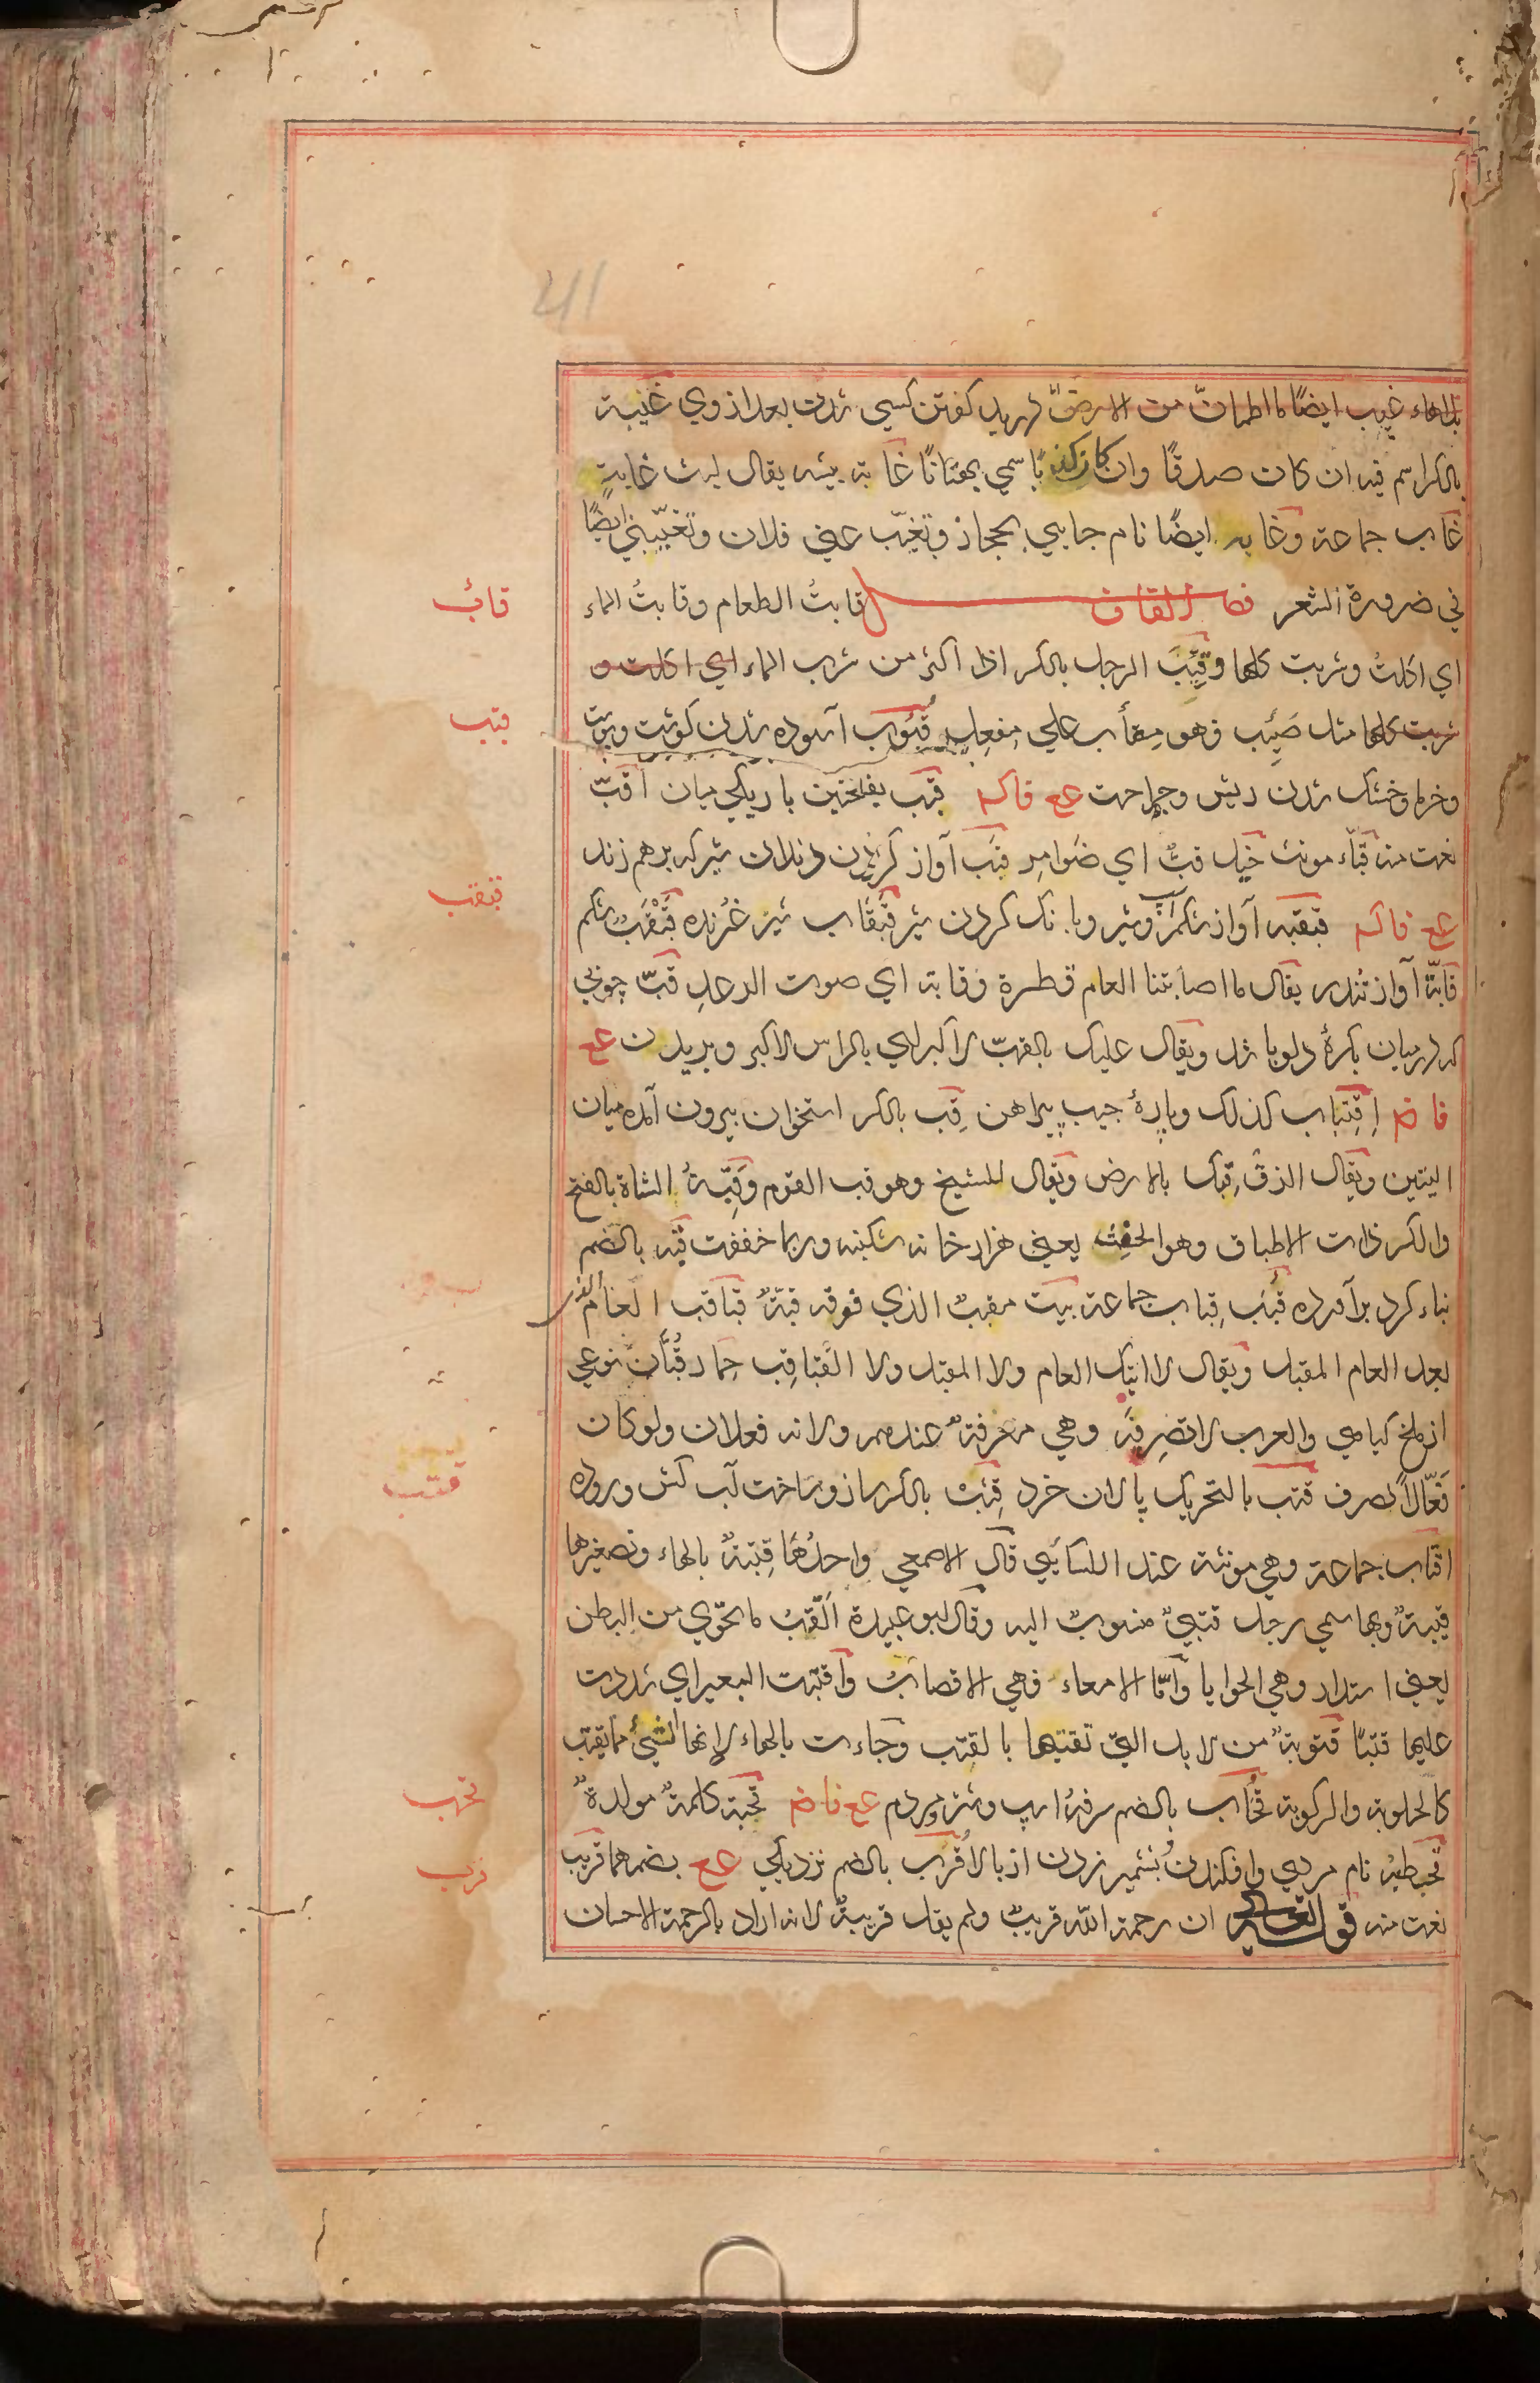 بالهاء غيب ايضًا ما اطمانّ من الارض بد گفتن كسي شدن بعد از وي غَيْبة
بالكسر اسم فيه ان كان صدقًا وان كان كذبًا سمي بهتانًا غابة بيشه يقال ليث غابة
غاب جماعة وغابه ايضًا نام جايي بحجاز وتغيّب عني فلان وتغيّبني ايضًا
في ضرورة الشعر فصل القاف قابتُ الطعام وقابتُ الماء
اي اكلتُ وشربت كلما وقَئِبَ الرجل بالكسر اذا اكثر من شرب الماء اي اكلت و
شربت كلما مثل صَئِب فهو مِقأب علي مِفعل قُبُوب آسوده شدن گوشت وپوست
وخرما وخشك شدن ريش وجراحت عع فاكه قبب بفتحتين باريكي ميان اَقَبّ
نعت منه قبّاء مونث خيل قبٌّ اي ضَوامِر قبَب آواز كردن دندان شير كه برهم زند
عع فاكه قبقبه آواز شكم اسب وشير وبانك كردن شير قبقاب شير غرنده قَبْقَبْ شكم
قابّة آواز تندر يقال ما اصابتنا العام قطرة وقابة اي صوت الرعد قبّ چوبي
كه در ميان بكرهٔ دلو باشد ويقال عليك بالقبّ الاكبر اي بالراس الاكبر وبريدن عع
فاضم اِقتِباب كذلك وپارهٔ جيب پيراهن قِب بالكسر استخوان بيرون آمده ميان
اليتين ويقال الزق قبّك بالارض ويقال للشيخ وهو قب القوم وقِبّةُ الشاة بالفتح
والكسر ذات الاطباق وهو الحفث يعني هزار خانه شكنبه وربما خففت قبّه بالضم
بناء كرد برآورده قُبَب قِباب جماعة بيت مقببٌ الذي فوقه قبّةٌ قباقب العام الذي
بعد العام المقبل ويقال لا اتيك العام ولا المقبل ولا القُباقِب حِمار قُبّان نوعي
از ملخ كيامي والعرب لا تصرفه وهي معرفةٌ عندهم ولانه فعلان ولو كان
فَعّالًا لصرف قتب بالتحريك پالان خرد قِتب بالكسر ساز وساخت آب كش وروده
اقتاب جماعة وهي مونثة عند الكسائي قال الاصمعي واحدُها قِتبَةٌ بالهاء وتصغيرها
قتيبةٌ وبها سمي رجل قتبيٌّ منسوبٌ اليه وقال ابو عبيدة القِتْب ما تحوي من البطن
يعني استدار وهي الحوايا وامّا الامعاء فهي الاقصابُ واقتبت البعير اي شددت
عليها قتبًا قتوبةٌ من الابل التي تقتبها بالقتب وجاءت بالهاء لانها الشيء مما يقتب
كالحلوبة والركوبة قُحاب بالضم سرفهٔ اسپ وشتر ومردم عع فاضم قحبة كلمةٌ مولدةٌ
قحطبة نام مردي وافكندن بشمير زدن از بالا قُرب بالضم نزديكي عع بضمهما قريب
نعت منه قوله تعالي ان رحمة الله قريبٌ ولم يقل قريبةٌ لانه اراد بالرحمة الاحسان
قائب
قبب
قبقب
قتب
قحب
قرب